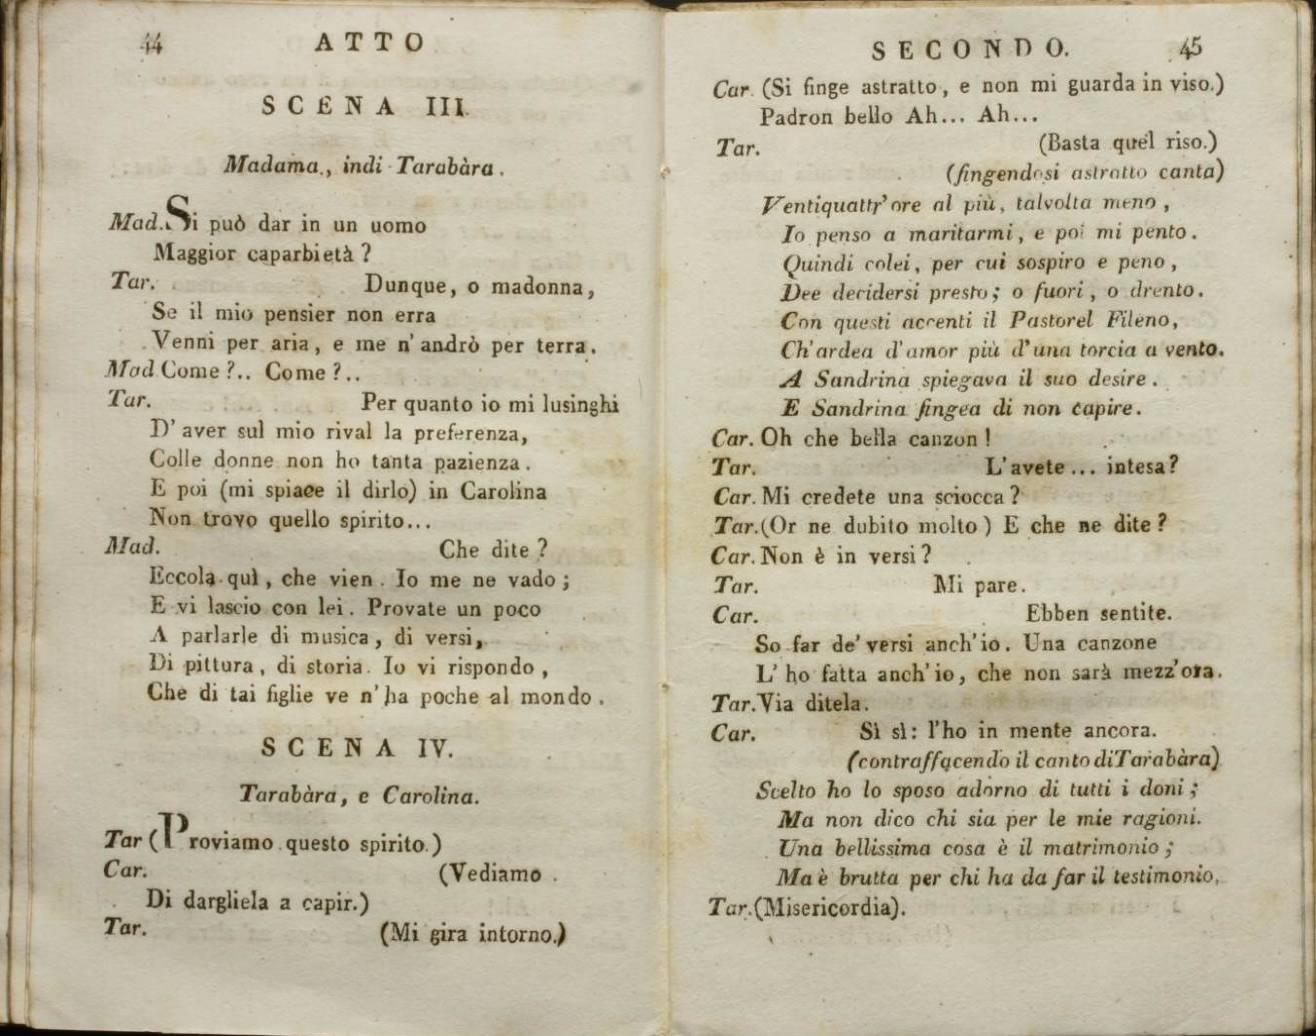 44 ATTO
SCENA III.
Madama., indi Tarabàra.
Mad. Si può dar in un uomo
Maggior caparbietà?
Tar. Dunque, o madonna,
Se il mio pensier non erra
Venni per aria, e me n'andrò per terra.
Mad Come?.. Come?..
Tar. Per quanto io mi lusinghi
D'aver sul mio rival la preferenza,
Colle donne non ho tanta pazienza.
E poi (mi spiace il dirlo) in Carolina
Non trovo quello spirito...
Mad. Che dite?
Eccola quì, che vien. Io me ne vado;
E vi lascio con lei. Provate un poco
A parlarle di musica, di versi,
Di pittura, di storia. Io vi rispondo,
Che di tai figlie ve n'ha poche al mondo.
SCENA IV.
Tarabàra, e Carolina.
Tar (Proviamo questo spirito.)
Car. (Vediamo
Di dargliela a capir.)
Tar. (Mi gira intorno.)
SECONDO. 45
Car. (Si finge astratto, e non mi guarda in viso.)
Padron bello Ah... Ah...
Tar. (Basta quel riso.)
(fingendosi astratto canta)
Ventiquattr'ore al più, talvolta meno,
Io penso a maritarmi, e poi mi pento.
Quindi colei, per cui sospiro e peno,
Dee decidersi presto; o fuori, o drento.
Con questi accenti il Pastorel Fileno,
Ch'ardea d'amor più d'una torcia a vento.
A Sandrina spiegava il suo desire.
E Sandrina fingea di non capire.
Car. Oh che bella canzon!
Tar. L'avete... intesa?
Car. Mi credete una sciocca?
Tar. (Or ne dubito molto) E che ne dite?
Car. Non è in versi?
Tar. Mi pare.
Car. Ebben sentite.
So far de' versi anch'io. Una canzone
L'ho fatta anch'io, che non sarà mezz'ora.
Tar. Via ditela.
Car. Sì sì: l'ho in mente ancora.
(contraffacendo il canto di Tarabàra)
Scelto ho lo sposo adorno di tutti i doni;
Ma non dico chi sia per le mie ragioni.
Una bellissima cosa è il matrimonio;
Ma è brutta per chi ha da far il testimonio.
Tar. (Misericordia).